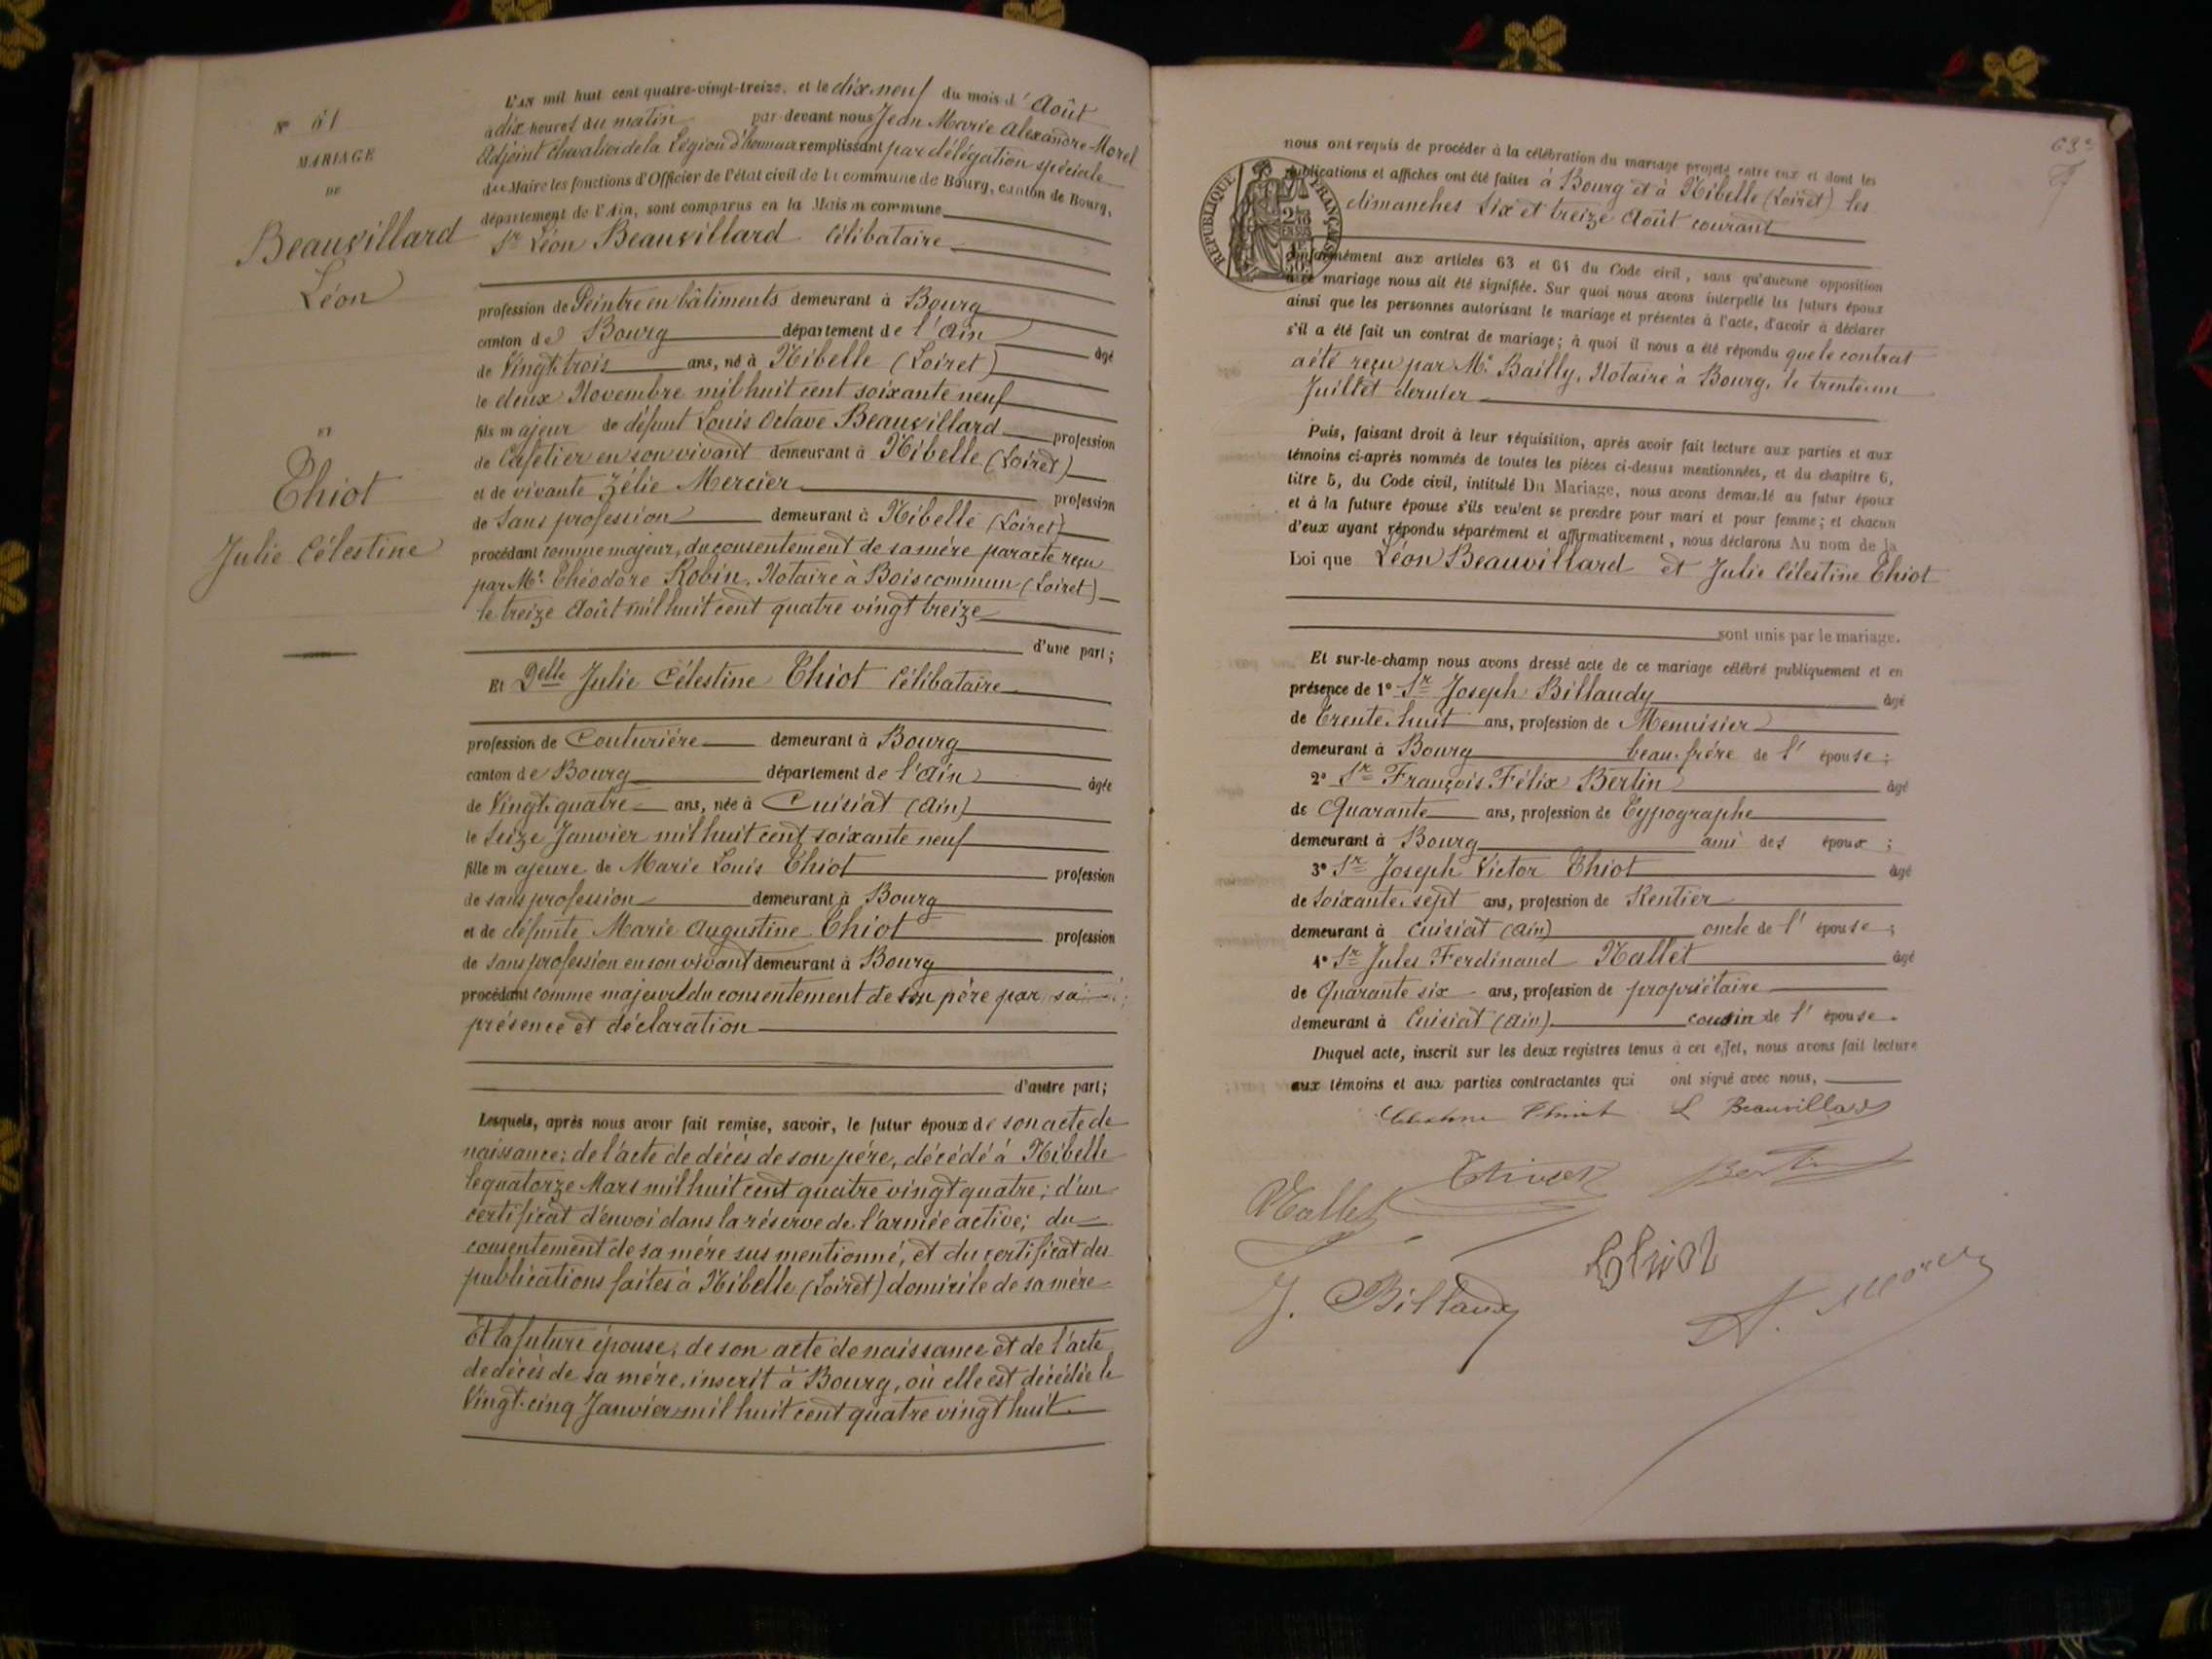 N° 61
MARIAGE
DE
Beauvillard
Léon
ET
Thiot
Julie Célestine
L'AN mil huit cent quatre-vingt-treize, et le dix neuf du mois d'Août
à dix heures du matin par-devant nous Jean Marie Alexandre Morel
Adjoint Chevalier de la Légion d'honneur remplissant par délégation spéciale
du Maire les fonctions d'Officier de l'état civil de la commune de Bourg, canton de Bourg,
département de l'Ain, sont comparus en la Maison commune
Sr Léon Beauvillard Célibataire
profession de Peintre en bâtiments demeurant à Bourg
canton de Bourg département de l'Ain âgé
de Vingt-trois ans, né à Nibelle (Loiret)
le deux Novembre mil huit cent soixante neuf
fils majeur de défunt Louis Octave Beauvillard profession
de Cafetier en son vivant demeurant à Nibelle (Loiret)
et de vivante Zélie Mercier profession
de Sans profession demeurant à Nibelle (Loiret)
procédant comme majeur, du consentement de sa mère par acte reçu
par Me Théodore Robin, Notaire à Boiscommun (Loiret)
le treize Août mil huit cent quatre vingt treize
d'une part;
Et Delle Julie Célestine Thiot Célibataire
profession de Couturière demeurant à Bourg
canton de Bourg département de l'Ain âgée
de Vingt-quatre ans, née à Cuisiat (Ain)
le Seize Janvier mil huit cent soixante neuf
fille majeure de Marie Louis Thiot profession
de sans profession demeurant à Bourg
et de défunte Marie Augustine Thiot profession
de sans profession en son vivant demeurant à Bourg
procédant comme majeure du consentement de son père par sa
présence et déclaration
d'autre part;
Lesquels, après nous avoir fait remise, savoir, le futur époux de son acte de
naissance; de l'acte de décès de son père, décédé à Nibelle
le quatorze Mars mil huit cent quatre vingt quatre; d'un
certificat d'envoi dans la réserve de l'armée active; du
consentement de sa mère sus mentionné, et du certificat des
publications faites à Nibelle (Loiret) domicile de sa mère
Et la future épouse, de son acte de naissance et de l'acte
de décès de sa mère, inscrit à Bourg, où elle est décédée le
Vingt-cinq Janvier mil huit cent quatre vingt huit.
63e
nous ont requis de procéder à la célébration du mariage projeté entre eux et dont les
publications et affiches ont été faites à Bourg et à Nibelle (Loiret) les
RÉPUBLIQUE FRANÇAISE
dimanches six et treize Août courant
conformément aux articles 63 et 64 du Code civil, sans qu'aucune opposition
à ce mariage nous ait été signifiée. Sur quoi nous avons interpellé les futurs époux
ainsi que les personnes autorisant le mariage et présentes à l'acte, d'avoir à déclarer
s'il a été fait un contrat de mariage; à quoi il nous a été répondu que le contrat
a été reçu par Me Bailly, Notaire à Bourg, le trente-un
Juillet dernier
Puis, faisant droit à leur réquisition, après avoir fait lecture aux parties et aux
témoins ci-après nommés de toutes les pièces ci-dessus mentionnées, et du chapitre 6,
titre 5, du Code civil, intitulé Du Mariage, nous avons demandé au futur époux
et à la future épouse s'ils veulent se prendre pour mari et pour femme; et chacun
d'eux ayant répondu séparément et affirmativement, nous déclarons Au nom de la
Loi que Léon Beauvillard et Julie Célestine Thiot
sont unis par le mariage.
Et sur-le-champ nous avons dressé acte de ce mariage célébré publiquement et en
présence de 1° Sr Joseph Billaudy âgé
de Trente-huit ans, profession de Menuisier
demeurant à Bourg beau-frère de l'épouse;
2° Sr François Félix Bertin âgé
de Quarante ans, profession de Typographe
demeurant à Bourg ami des époux;
3° Sr Joseph Victor Thiot âgé
de Soixante-sept ans, profession de Rentier
demeurant à Cuisiat (Ain) oncle de l'épouse;
4° Sr Jules Ferdinand Nallet âgé
de Quarante six ans, profession de propriétaire
demeurant à Cuisiat (Ain) cousin de l'épouse.
Duquel acte, inscrit sur les deux registres tenus à cet effet, nous avons fait lecture
aux témoins et aux parties contractantes qui ont signé avec nous,
Thiot L Beauvillard
Nallet Thiot Bertin
J. Billaudy Thiot A. Morel